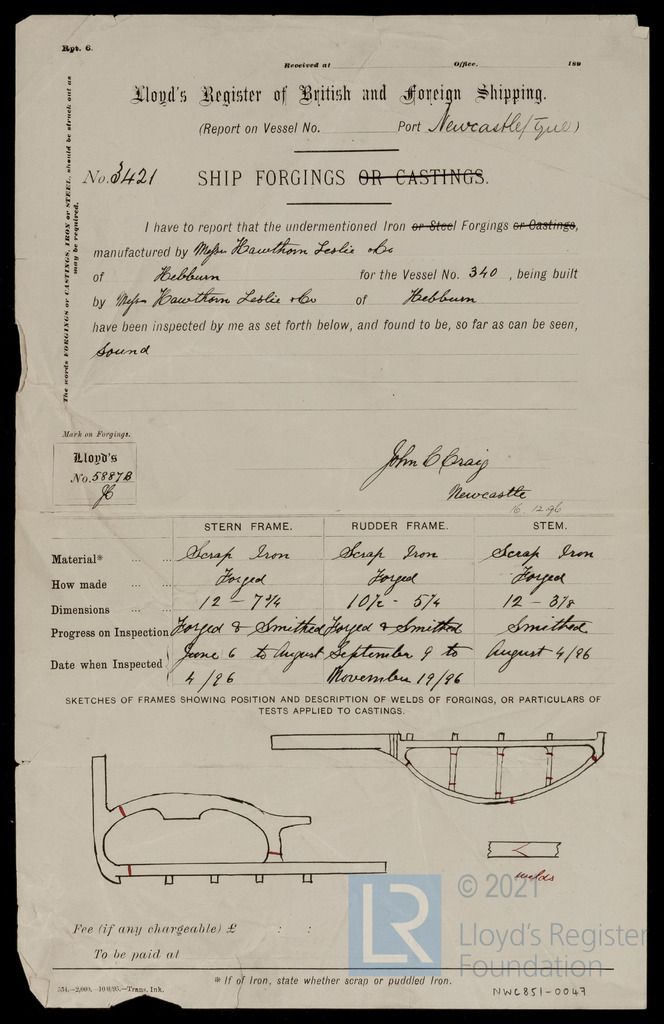 Rpt. 6.
Received at Office, 189
Lloyd's Register of British and Foreign Shipping.
(Report on Vessel No. Port Newcastle/Tyne)
No. 3421 SHIP FORGINGS OR CASTINGS.
The words FORGINGS or CASTINGS, IRON or STEEL, should be struck out as may be required.
I have to report that the undermentioned Iron or Steel Forgings or Castings,
manufactured by Messrs Hawthorn Leslie & Co
of Hebburn for the Vessel No. 340, being built
by Messrs Hawthorn Leslie & Co of Hebburn
have been inspected by me as set forth below, and found to be, so far as can be seen,
sound
Mark on Forgings.
Lloyd's
No. 5887B
JC
John C Craig
Newcastle
16.12.96
STERN FRAME. RUDDER FRAME. STEM.
Material* ... ... Scrap Iron Scrap Iron Scrap Iron
How made ... ... Forged Forged Forged
Dimensions ... ... 12 - 7 3/4 10 1/2 - 5 1/4 12 - 3 1/8
Progress on Inspection Forged & Smithed Forged & Smithed Smithed
Date when Inspected June 6 to August 4/96 September 9 to November 19/96 August 4/96
SKETCHES OF FRAMES SHOWING POSITION AND DESCRIPTION OF WELDS OF FORGINGS, OR PARTICULARS OF
TESTS APPLIED TO CASTINGS.
welds
Fee (if any chargeable) £ : :
To be paid at
* If of Iron, state whether scrap or puddled Iron.
Trans. Ink.
NWC851-0047
LR
© 2021
Lloyd's Register
Foundation